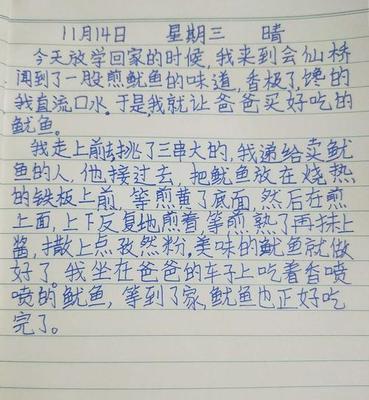 11月14日 星期三 晴
今天放学回家的时候,我来到会仙桥
闻到了一股煎鱿鱼的味道,香极了,馋的
我直流口水。于是,我就让爸爸买好吃的
鱿鱼。
我走上前去挑了三串大的,我递给卖鱿
鱼的人,他接过去,把鱿鱼放在烧热
的铁板上前,等煎黄了底面,然后在煎
上面,上下反复地煎着,等煎熟了再抹上
酱,撒上点孜然粉,美味的鱿鱼就做
好了。我坐在爸爸的车子上吃着香喷
喷的鱿鱼,等到了家,鱿鱼也正好吃
完了。